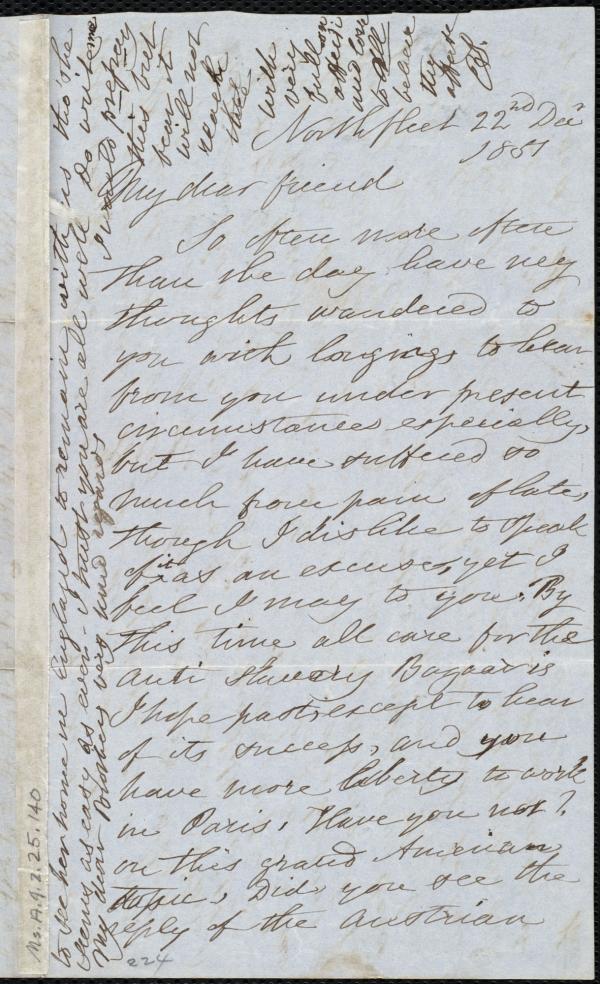 Northfleet 22nd Decr
1851
My dear friend
So often more often
than the day have my
thoughts wandered to
you with longings to hear
from you under present
circumstances especially,
but I have suffered so
much from pain of late,
though I dislike to speak
of it as an excuse, yet I
feel I may to you. By
this time all care for the
Anti Slavery Bazaar is
I hope past, except to hear
of its success, and you
have more liberty to work
in Paris, Have you not?
on this grand American
topic, Did you see the
reply of the Austrian
to see her home in England to remain with us tho' she
seems as easy as ever. I trust you are all well Do write me
My dear Mother's very kind regards
I would prepay
this but
fear it
will not
reach
thee
with
very
full
affection
and love
to all
224
Ms.A.9.2.25.140